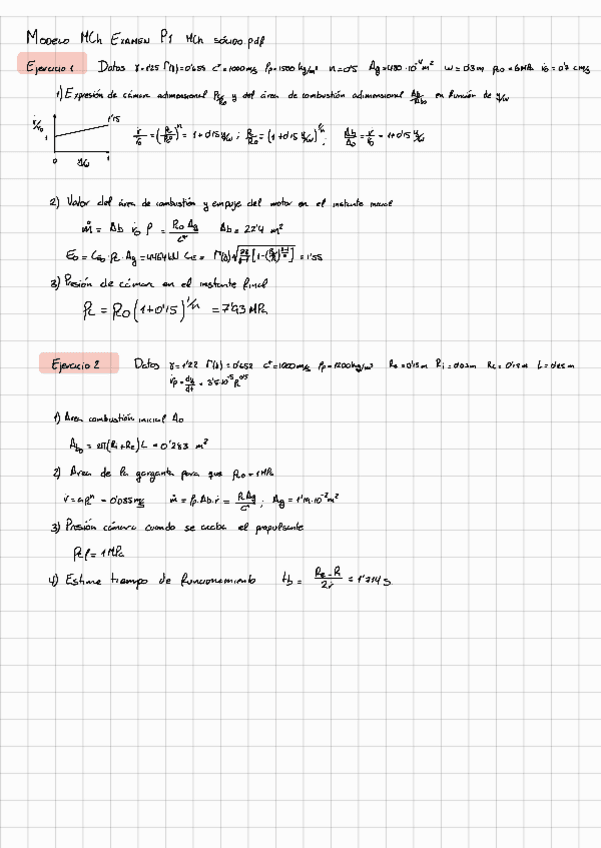 MODELO MCh EXAMEN P1 MCh sólido pdf
Ejercicio 1 Datos γ=1'25 Γ(γ)=0'658 c*=1000 m/s ρp=1500 kg/m³ n=0'5 Ag=480·10⁻⁴m² w=0'3m pc0=6MPa
1) Expresión de cámara adimensional Pc/Pc0 y del área de combustión adimensional Ab/Ab0 en función de y/w
ṙ/ṙ0 1 1'15
0 y/w 1
ṙ/ṙ0 = (Pc/Pc0)ⁿ = 1+0'15 y/w ; Pc/Pc0 = (1+0'15 y/w)^1/n ;
2) Valor del área de combustión y empuje del motor en el instante inicial
ṁ = Ab ṙ0 ρ = Pc0 Ag/c* Ab = 22'4 m²
= 1'55
3) Presión de cámara en el instante final
Pc = Pc0 (1+0'15)^1/n = 7'93 MPa
Ejercicio 2 Datos γ=1'22 Γ(γ)=0'652 c*=1000 m/s ρp=1200 kg/m³ Re=0'15m
1) Area combustión inicial A0
Ab0 = 2π(Ri+Re)L = 0'283 m²
2) Area de la garganta para que Pc0=1MPa
ṁ = ρp·Ab·ṙ = Pc Ag/c* ;
3) Presión cámara cuando se acaba el propulsante
Pcf = 1 MPa
4) Estime tiempo de funcionamiento tb = Re-Ri/2ṙ = 1'214 s